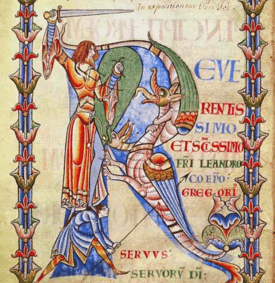 in expositionem
REVE
RENTIS
SIMO
ET SC̄ISSIMO
FR̄I LEANDRO
COEP̄O
GREGORI
SERVVS
SERVORV̄ DI: